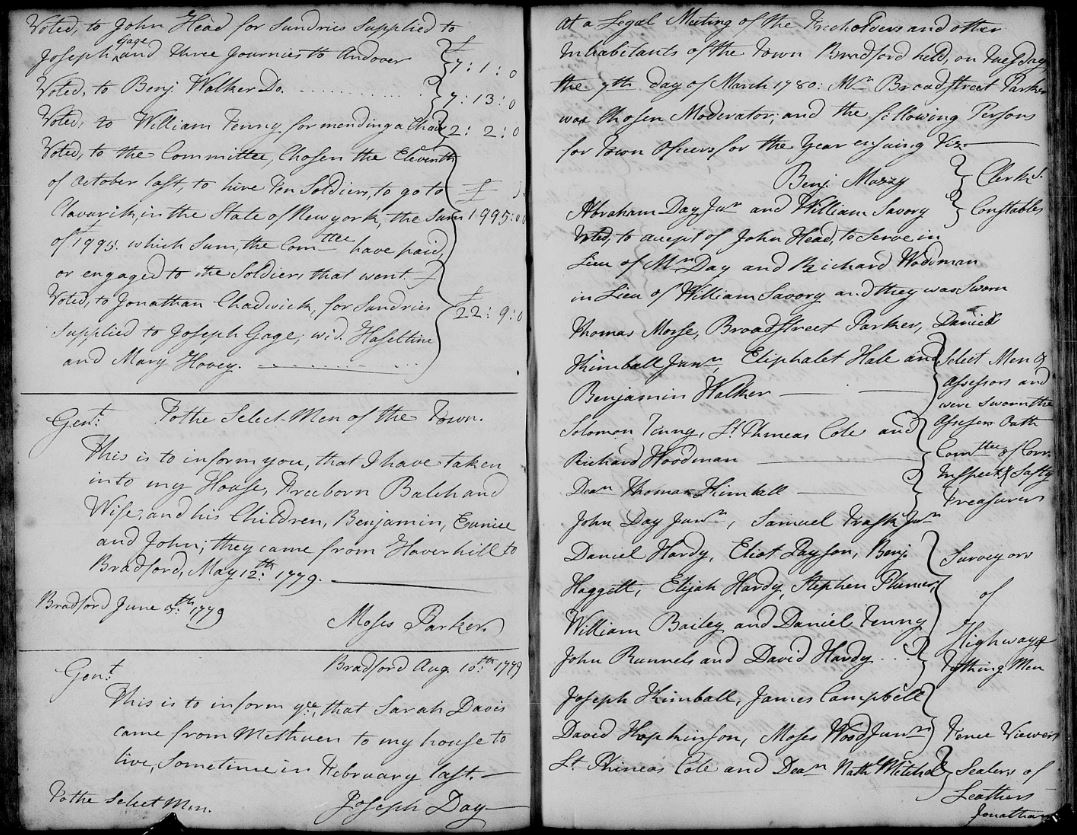 Voted, to John Head for Sundries Supplied to
Joseph Gage and three Journies to Andover £7:1:0
Voted, to Benj. Walker Do. 7:13:0
Voted, to William Tenny for mending a Chair 2:2:0
Voted, to the Committee, Chosen the Eleventh
of October last, to hire Ten Soldiers, to go to
Clavarik, in the State of New york, the Sum £1995:0:0
of £1995. which Sum, the Comttee have paid,
or engaged to the Soldiers that went.
Voted, to Jonathan Chadwick, for Sundries £22:9:0
Supplied to Joseph Gage; wid. Haseltine
and Mary Hovey.
Gent. To the Select Men of the Town.
This is to inform you, that I have taken
into my House, Freeborn Balch and
Wife, and his Children, Benjamin, Eunice
and John; they came from Haverhill to
Bradford, May 12.th 1779.
Bradford June 8.th 1779
Moses Parker
Bradford Aug. 10.th 1779
Gent
This is to inform ye, that Sarah Davis
came from Methuen to my house to
live, Sometime in February last.
To the Select Men. Joseph Day
At a Legal Meeting of the Freeholders and other
Inhabitants of the Town Bradford held, on Tuesday
the 7th day of March 1780: Mr Broadstreet Parker
was Chosen Moderator, and the following Persons
for Town Officers for the Year ensuing Viz.
Benj. Muzzy Clerk.
Abraham Day Junr and William Savory Constables
Voted, to accept of John Head, to serve in
Lieu of Mr Day and Reichard Woodman
in Lieu of William Savory and they was Sworn
Thomas Morse, Broadstreet Parker, Daniel
Kimball Junr, Eliphalet Hale and Select Men &
Benjamin Walker Assessors and
were Sworn the
Assessors Oath
Solomon Tenny, Lt Phineas Cole and Comttee of Corr.
Richard Woodman Inspect. & Safty
Dean Thomas Kimball Treasurer
John Day Junr, Samuel Trask Jur
Daniel Hardy, Eliot Payson, Benj. Surveyors
Haggett, Elijah Hardy, Stephen Plumer, of
William Bailey and Daniel Tenny Highways
John Runnels and David Hardy Tything Men
Joseph Kimball, James Campbell
David Hopkinson, Moses Wood Junr Fence Viewers
Lt Phineas Cole and Dean Nath. Mitchel Sealers of
Leathers
Jonathan